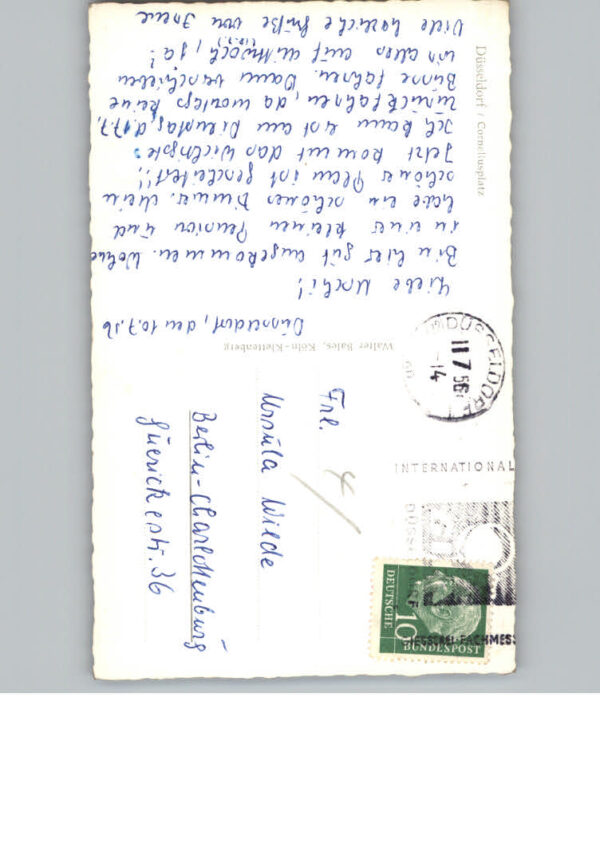 Düsseldorf, den 10.7.56
Liebe Uschi!
Bin hier gut angekommen. Wohne
in einer kleinen Pension und
habe ein schönes Zimmer. Mein
schöner Plan ist gescheitert!!
Jetzt kommt das Wichtigste:
Ich kann erst am Dienstag, d. 17.7.,
zurückfahren, da montags keine
Busse fahren. Dann verschieben
wir alles auf Mittwoch, ja!
(18.7.)
Viele herzliche Grüße von Irene
Düsseldorf / Corneliusplatz
Walter Bales, Köln-Klettenberg
Frl.
Ursula Wilde
Berlin-Charlottenburg
Guerickestr. 36
DÜSSELDORF
11 7 56
-14
INTERNATIONAL
FACHMESS
DEUTSCHE
BUNDESPOST
10